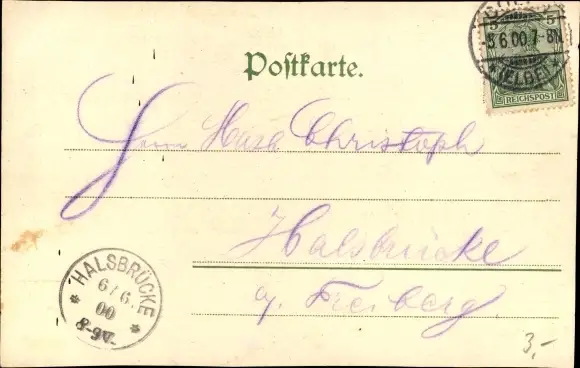 5 5
6.00.7-8N.
(ELBE)
REICHSPOST
Postkarte.
Herrn Christoph
Halsbrücke
b. Freiberg.
HALSBRÜCKE
6/6.
00
8-9V.
3,-